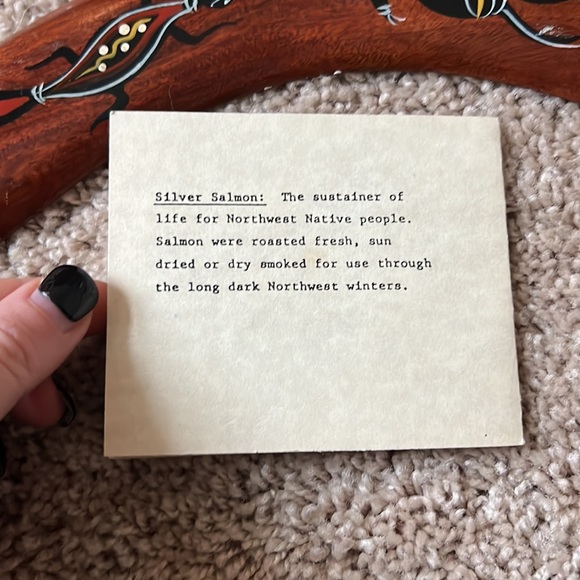 Silver Salmon: The sustainer of
life for Northwest Native people.
Salmon were roasted fresh, sun
dried or dry smoked for use through
the long dark Northwest winters.